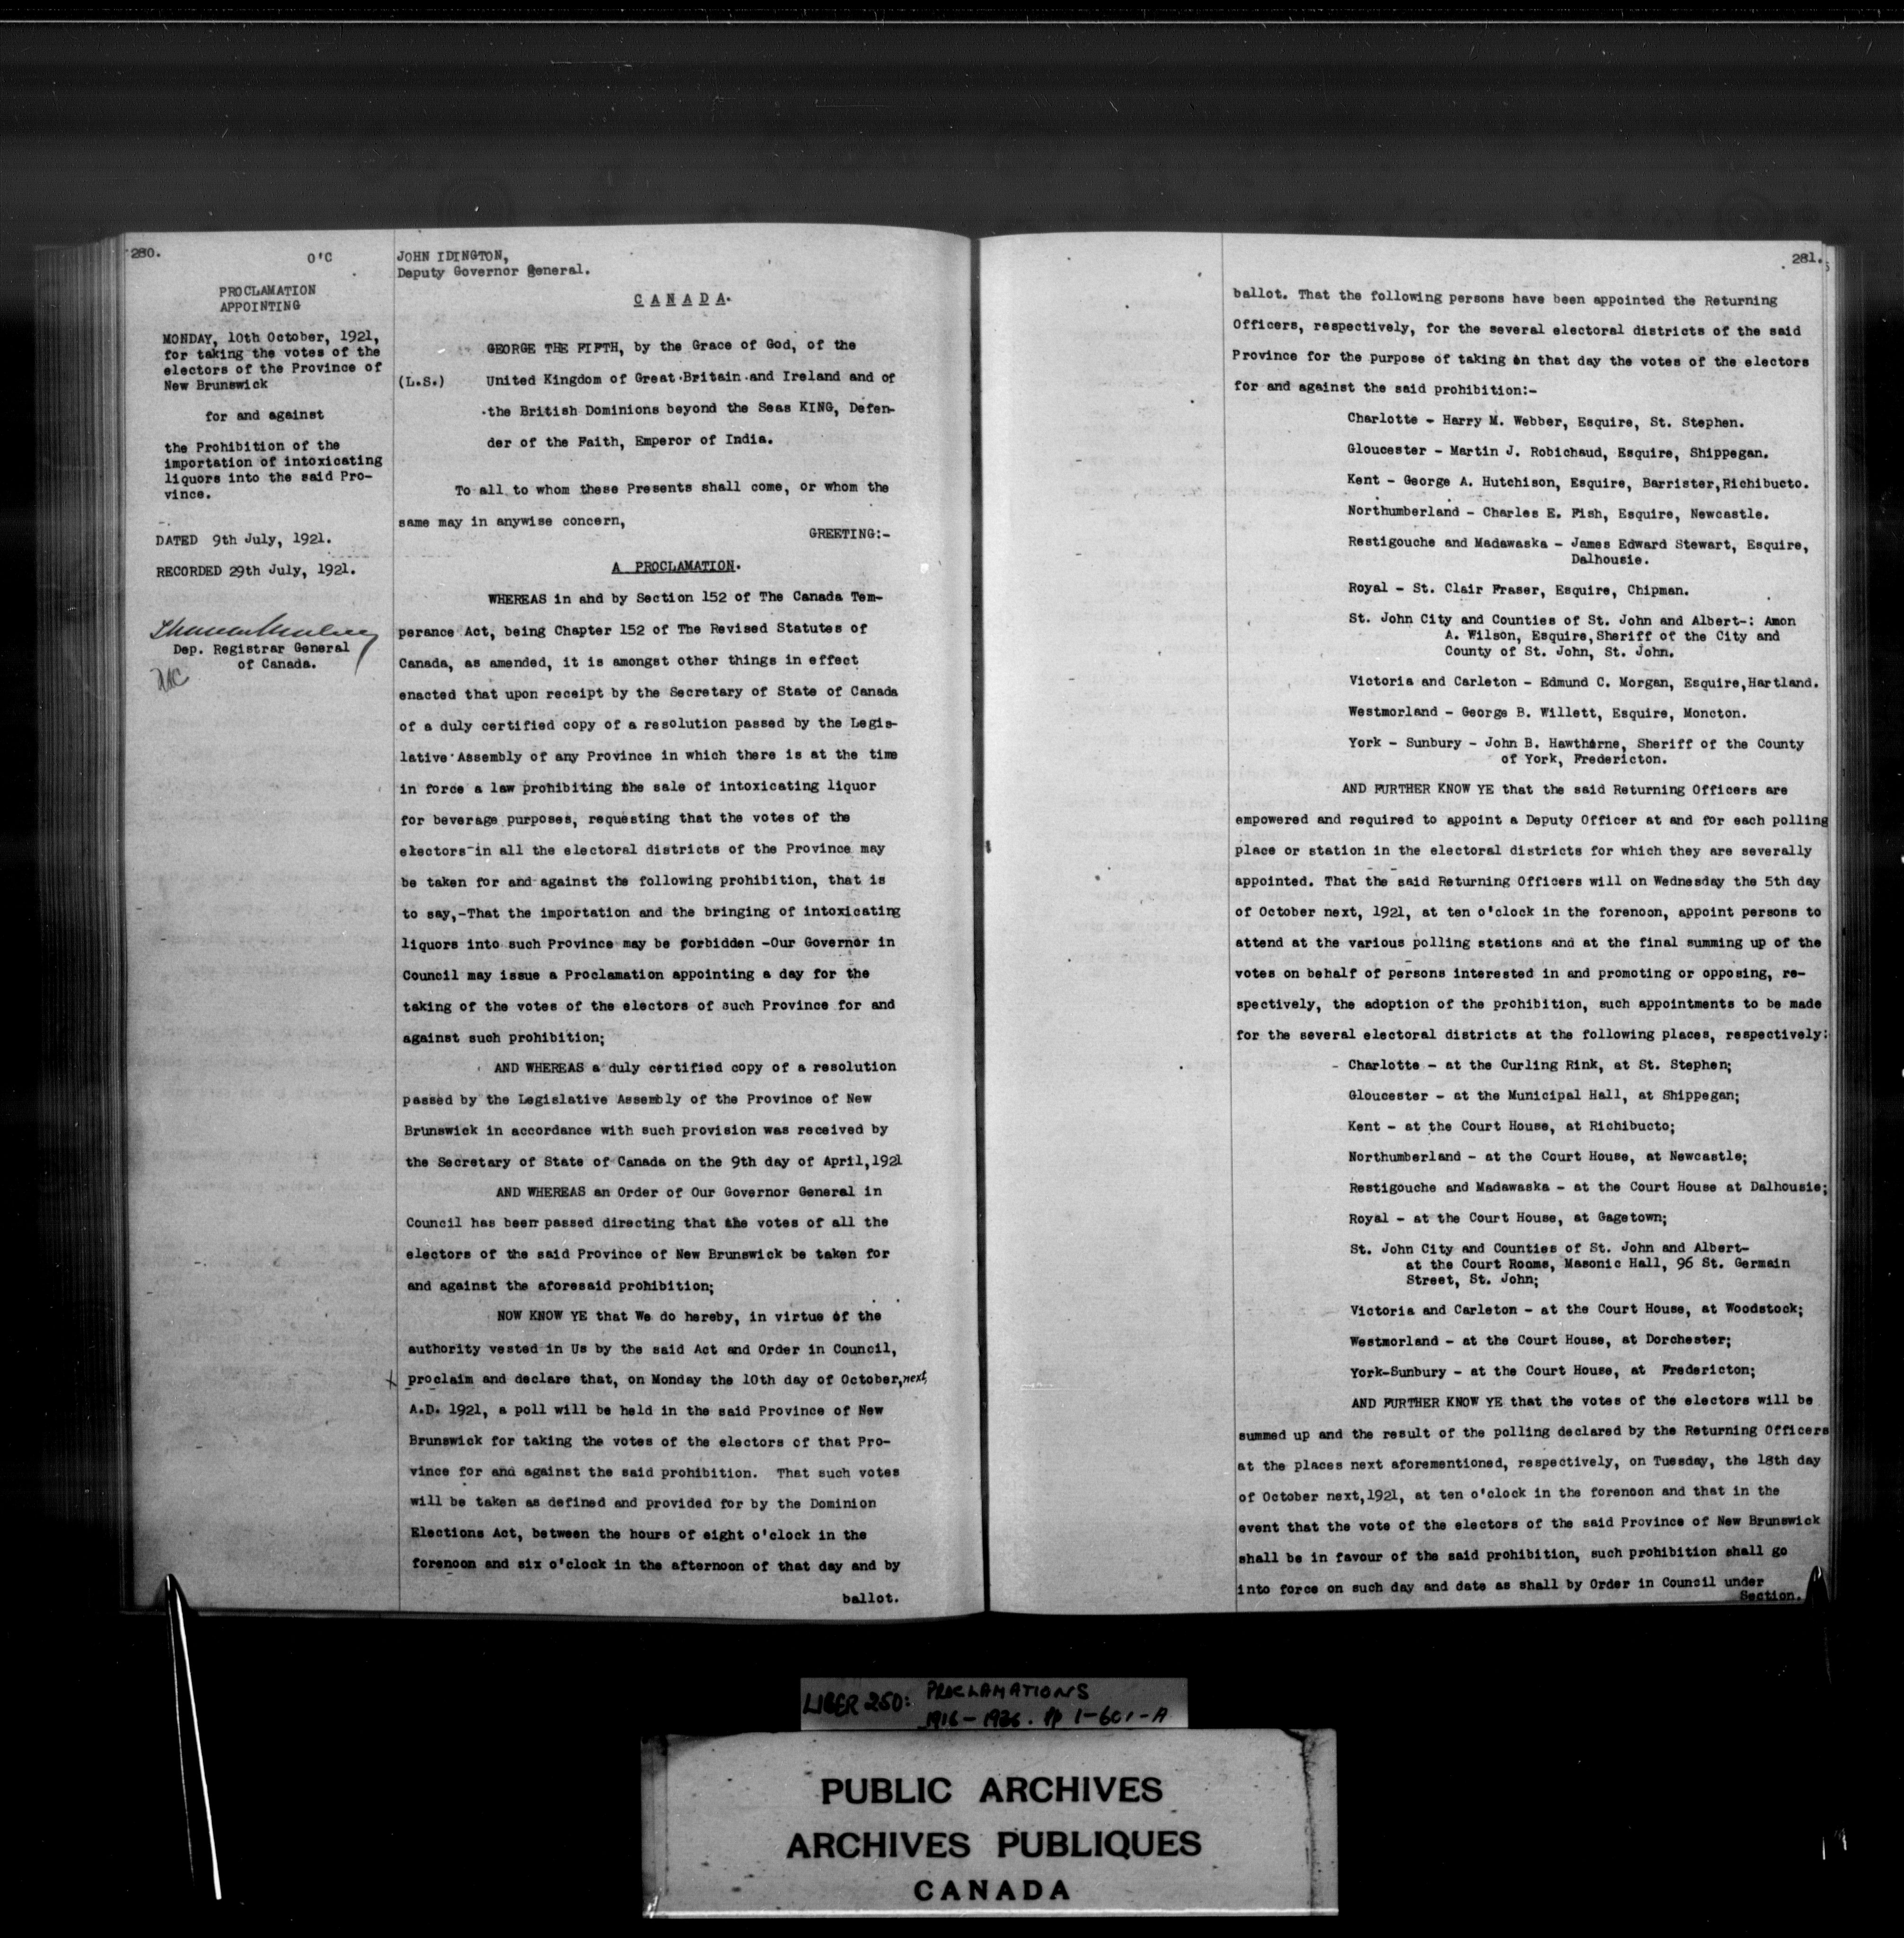 280.
O'C
PROCLAMATION
APPOINTING
MONDAY, 10th October, 1921,
for taking the votes of the
electors of the Province of
New Brunswick
for and against
the Prohibition of the
importation of intoxicating
liquors into the said Pro-
vince.
DATED 9th July, 1921.
RECORDED 29th July, 1921.
Dep. Registrar General
of Canada.
JOHN IDINGTON,
Deputy Governor General.
CANADA.
GEORGE THE FIFTH, by the Grace of God, of the
(L.S.) United Kingdom of Great Britain and Ireland and of
the British Dominions beyond the Seas KING, Defen-
der of the Faith, Emperor of India.
To all to whom these Presents shall come, or whom the
same may in anywise concern,
GREETING:-
A PROCLAMATION.
WHEREAS in and by Section 152 of The Canada Tem-
perance Act, being Chapter 152 of The Revised Statutes of
Canada, as amended, it is amongst other things in effect
enacted that upon receipt by the Secretary of State of Canada
of a duly certified copy of a resolution passed by the Legis-
lative Assembly of any Province in which there is at the time
in force a law prohibiting the sale of intoxicating liquor
for beverage purposes, requesting that the votes of the
electors in all the electoral districts of the Province may
be taken for and against the following prohibition, that is
to say,-That the importation and the bringing of intoxicating
liquors into such Province may be forbidden -Our Governor in
Council may issue a Proclamation appointing a day for the
taking of the votes of the electors of such Province for and
against such prohibition;
AND WHEREAS a duly certified copy of a resolution
passed by the Legislative Assembly of the Province of New
Brunswick in accordance with such provision was received by
the Secretary of State of Canada on the 9th day of April,1921
AND WHEREAS an Order of Our Governor General in
Council has been passed directing that the votes of all the
electors of the said Province of New Brunswick be taken for
and against the aforesaid prohibition;
NOW KNOW YE that We do hereby, in virtue of the
authority vested in Us by the said Act and Order in Council,
proclaim and declare that, on Monday the 10th day of October,next,
A.D. 1921, a poll will be held in the said Province of New
Brunswick for taking the votes of the electors of that Pro-
vince for and against the said prohibition. That such votes
will be taken as defined and provided for by the Dominion
Elections Act, between the hours of eight o'clock in the
forenoon and six o'clock in the afternoon of that day and by
ballot.
281.
ballot. That the following persons have been appointed the Returning
Officers, respectively, for the several electoral districts of the said
Province for the purpose of taking on that day the votes of the electors
for and against the said prohibition:-
Charlotte - Harry M. Webber, Esquire, St. Stephen.
Gloucester - Martin J. Robichaud, Esquire, Shippegan.
Kent - George A. Hutchison, Esquire, Barrister,Richibucto.
Northumberland - Charles E. Fish, Esquire, Newcastle.
Restigouche and Madawaska - James Edward Stewart, Esquire,
Dalhousie.
Royal - St. Clair Fraser, Esquire, Chipman.
St. John City and Counties of St. John and Albert-: Amon
A. Wilson, Esquire,Sheriff of the City and
County of St. John, St. John.
Victoria and Carleton - Edmund C. Morgan, Esquire,Hartland.
Westmorland - George B. Willett, Esquire, Moncton.
York - Sunbury - John B. Hawthorne, Sheriff of the County
of York, Fredericton.
AND FURTHER KNOW YE that the said Returning Officers are
empowered and required to appoint a Deputy Officer at and for each polling
place or station in the electoral districts for which they are severally
appointed. That the said Returning Officers will on Wednesday the 5th day
of October next, 1921, at ten o'clock in the forenoon, appoint persons to
attend at the various polling stations and at the final summing up of the
votes on behalf of persons interested in and promoting or opposing, re-
spectively, the adoption of the prohibition, such appointments to be made
for the several electoral districts at the following places, respectively:
Charlotte - at the Curling Rink, at St. Stephen;
Gloucester - at the Municipal Hall, at Shippegan;
Kent - at the Court House, at Richibucto;
Northumberland - at the Court House, at Newcastle;
Restigouche and Madawaska - at the Court House at Dalhousie;
Royal - at the Court House, at Gagetown;
St. John City and Counties of St. John and Albert-
at the Court Rooms, Masonic Hall, 96 St. Germain
Street, St. John;
Victoria and Carleton - at the Court House, at Woodstock;
Westmorland - at the Court House, at Dorchester;
York-Sunbury - at the Court House, at Fredericton;
AND FURTHER KNOW YE that the votes of the electors will be
summed up and the result of the polling declared by the Returning Officers
at the places next aforementioned, respectively, on Tuesday, the 18th day
of October next,1921, at ten o'clock in the forenoon and that in the
event that the vote of the electors of the said Province of New Brunswick
shall be in favour of the said prohibition, such prohibition shall go
into force on such day and date as shall by Order in Council under
Section.
LIBER 250: PROCLAMATIONS
1916-1926. pp 1-601-A
PUBLIC ARCHIVES
ARCHIVES PUBLIQUES
CANADA